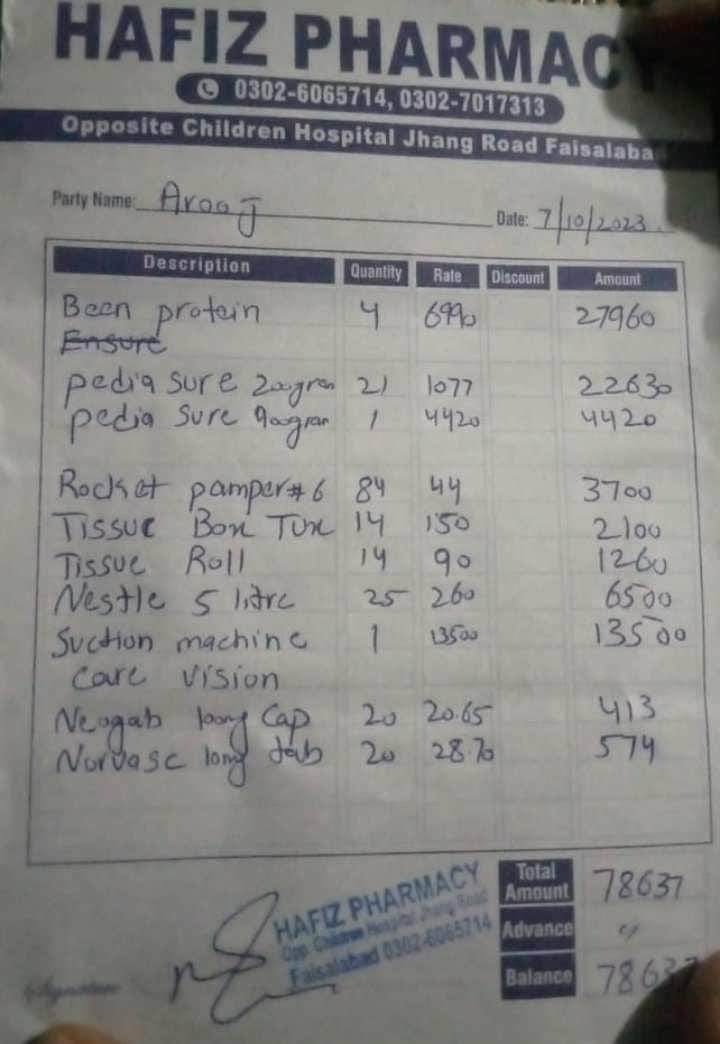 HAFIZ PHARMACY
0302-6065714, 0302-7017313
Opposite Children Hospital Jhang Road Faisalaba
Party Name: Arooj Date: 7/10/2023.
Description Quantity Rate Discount Amount
Been protein 4 6990 27960
Ensure
pedia sure 200gram 21 1077 22630
pedia sure 900gram 1 4420 4420
Rocket pamper#6 84 44 3700
Tissue Box Tux 14 150 2100
Tissue Roll 14 90 1260
Nestle 5 litre 25 260 6500
Suction machine 1 13500 13500
care vision
Neogab 100mg Cap 20 20.65 413
Norvasc 10mg tab 20 28.70 574
Total Amount 78637
Advance
Balance 78637
HAFIZ PHARMACY
Opp. Children Hospital Jhang Road
Faisalabad 0302-6065714
Signature